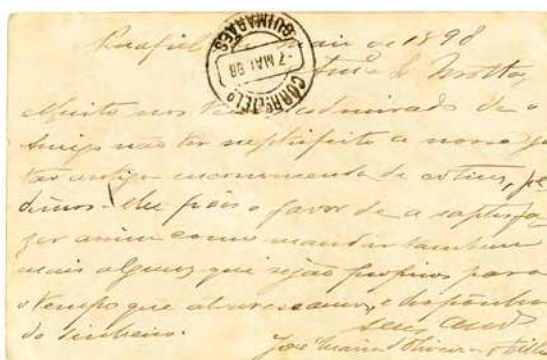 Penafiel de Maio de 1898
GUIMARÃES
7 MAI. 98
CORRO E TELO
Motta
Muito nos admirados de o
Amigo não ter satisfeito a nossa
tão antiga encommenda de
dimos-lhe pois o favor de a satisfa
zer assim como mandar tambem
mais alguns que sejão proprios para
o tempo que atravessamos, e
do dinheiro.
seus
José Maria d'Oliveira & Filho